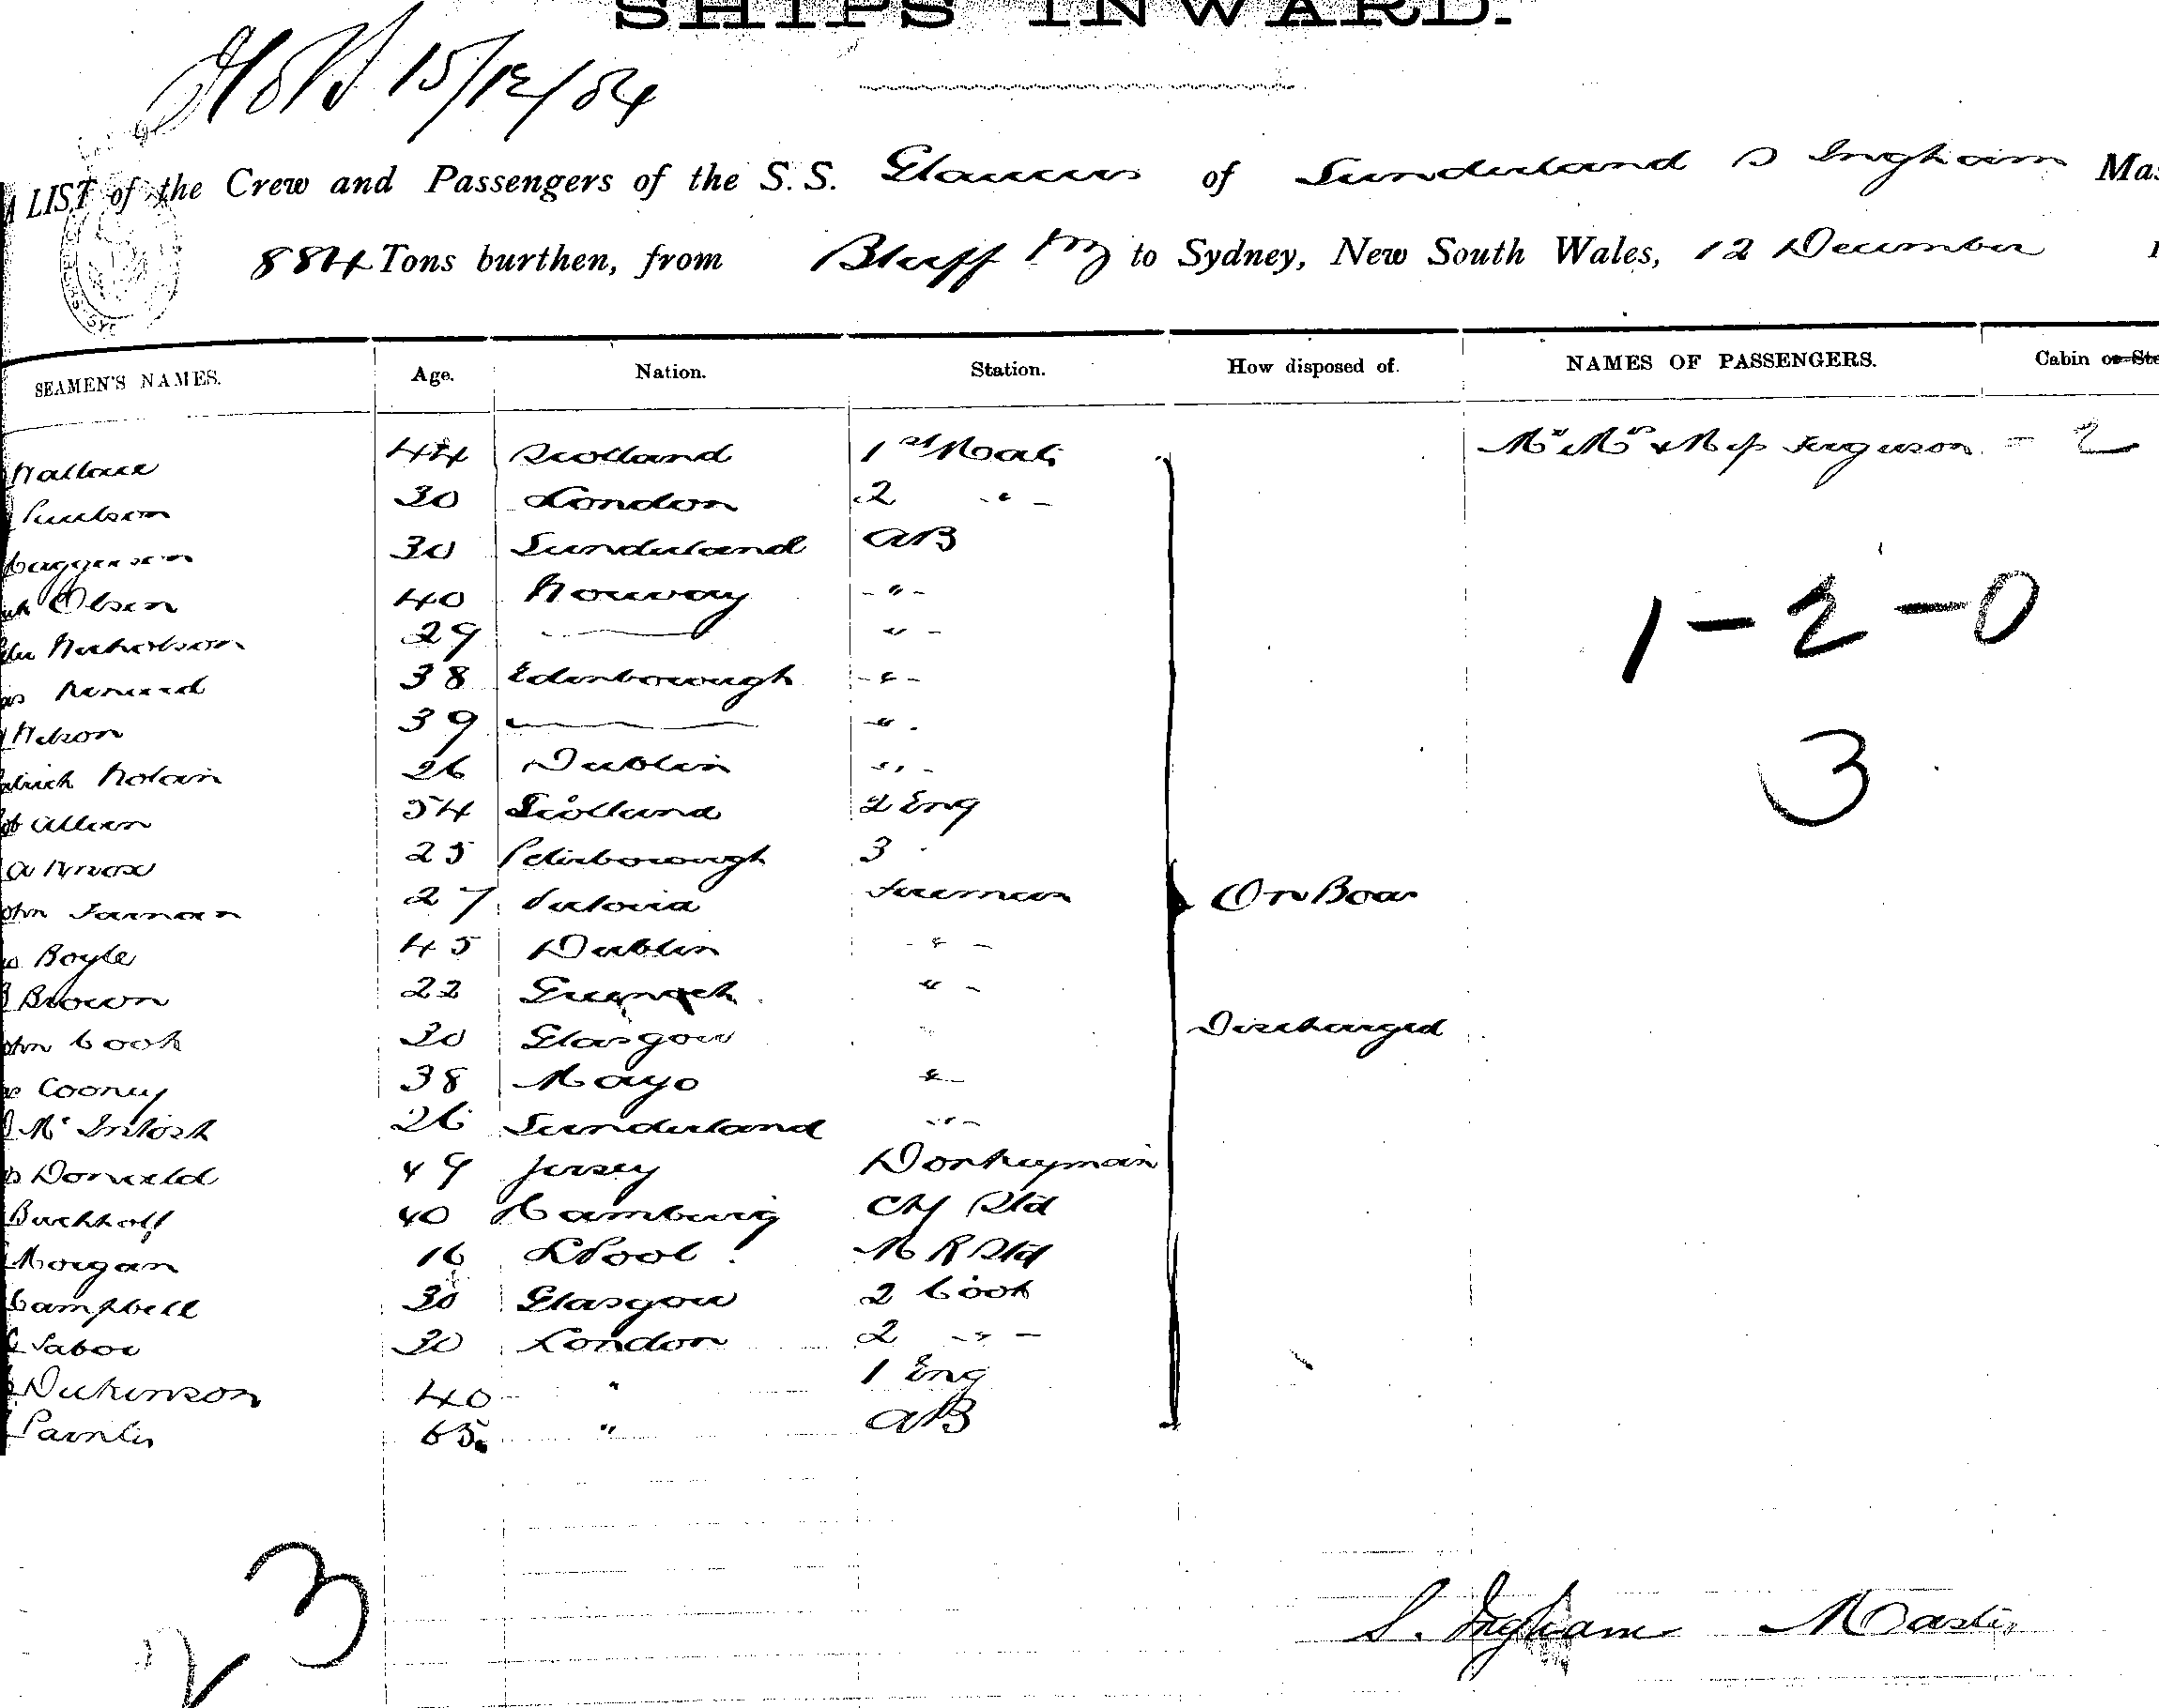 SHIPS INWARD.
15/12/84
A LIST of the Crew and Passengers of the S.S. Glaucus of Sunderland S Ingham Mas
884 Tons burthen, from Bluff NZ to Sydney, New South Wales, 12 December 1
SEAMEN'S NAMES. Age. Nation. Station. How disposed of. NAMES OF PASSENGERS. Cabin or Ste
Wallace 44 Scotland 1st Mate Mr Mrs & Miss Ferguson - 2
30 London 2 " -
30 Sunderland AB
Olsen 40 Norway - " -
Nicholson 29 " -
38 Edinborough - " -
Nelson 39 "
Nolan 26 Dublin " -
Allan 54 Scotland 2 Eng
A Knox 25 Peterborough 3
ohn 27 Victoria Fireman On Boar
Boyle 45 Dublin - " -
Brown 22 Greenock " -
ohn Cook 30 Glasgow Discharged
Cooney 38 Mayo "
McIntosh 26 Sunderland " -
Donald 49 Jersey Donkeyman
Buchholf 40 Hamburg Ch Std
Morgan 16 LPool M R Std
Campbell 30 Glasgow 2 Cook
30 London 2 " -
Dickinson 40 " 1 Eng
65 " AB
1-2-0
3
23
S. Ingham Master